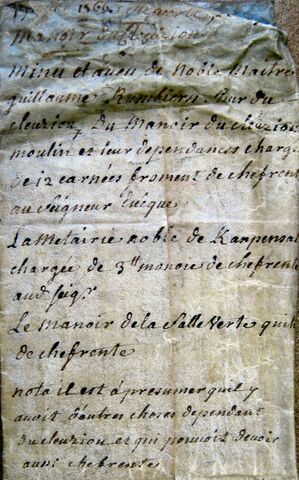 1566
Manoir du Cleuziou
minu et aveu de noble Maitre
guillaume Rumbiern Sieur du
cleuziou, Du Manoir du cleuziou
moulin et leur dependances chargé
de 12 carnées froment de chefrente
au Seigneur Evêque
La Metairie noble de
chargée de 3 monoie de chefrente
aud. seigr
Le Manoir de la Salle Verte quitte
de chefrente
nota il est à presumer qu'il y
avoit d'autres choses dependant
du cleuziou et qui pouvoit devoir
aussi chefrentes